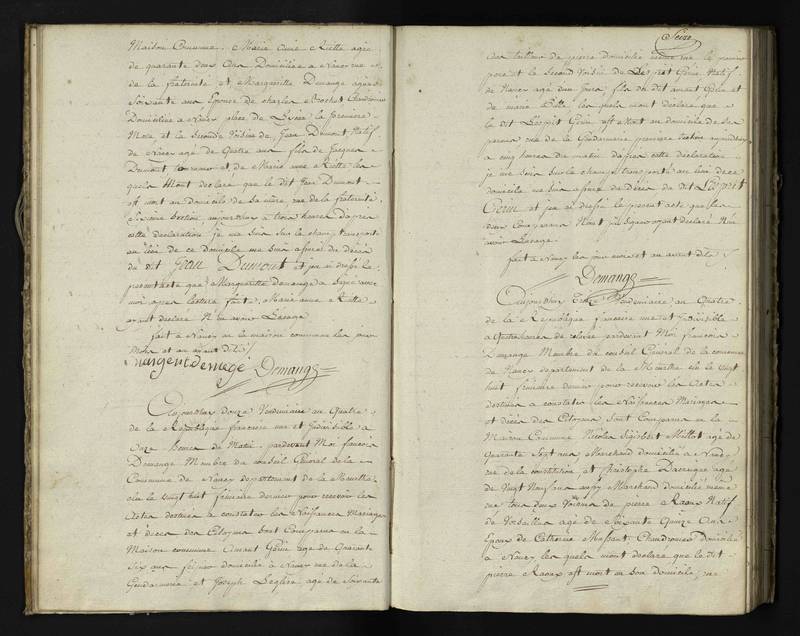 Maison Commune. Marie Anne Riette agée
de quarante deux Ans Domiciliée a Nancy rue
de la fraternité et Margueritte Demange agée
Soixante ans Epouse de Charles Brochet
Domiciliée a Nancy place de la
Mere et la Seconde Voisine de Jean Dumont Natif
de Nancy agé de Quatre ans fils de Jacques
Dumont et de Marie anne Riette les
quels Mont declaré que le dit Jean Dumont
est mort au Domicile de Sa mère, rue de la fraternité,
Section, aujourdhuy a trois heures d'apres
cette déclaration je me Suis Sur le champ transporté
au lieu de ce domicile me Suis assuré du décès
du dit Jean Dumont et j'en ai dressé le
present acte que Margueritte demange a Signé avec
moi apres lecture faite, Marie anne Riette
ayant déclaré Ne savoir l'usage
fait a Nancy en la maison commune les jour
Mois et an avant dits
margueritdemenge Demange
Aujourdhuy Douze Vendemiaire an Quatre
de la République francoise une et Indivisible a
Onze heures du Matin, pardevant Moi francois
Demange Membre du conseil Général de la
Commune de Nancy departement de la Meurthe
elu le vingt huit frimaire dernier pour recevoir les
Actes destinés a constater les Naissances Mariages
et décès des Citoyens Sont Comparus en la
Maison commune Amant Gérin agé de Quarante
Six ans domicilié a Nancy rue de la
Gendarmerie et Joseph Leglise agé de Soixante
Seize
ans tailleur de pierre domicilié même rue le premier
pere et le Second Voisin de Lesprit Gérin Natif
de Nancy agé de jours fils du dit Amant Gérin et
de marie les quels mont déclaré que
le dit Lesprit Gérin est mort au domicile de Ses
parens rue de la Gendarmerie premiere Section aujourdhuy
a cinq heures du matin d'apres cette déclaration
je me Suis Sur le champ transporté au lieu de ce
domicile me Suis assuré du Décès du dit Lesprit
Gérin et j'en ai dressé le present acte que les
deux Comparans N'ont pas Signés ayant déclaré Ne
savoir l'usage.
fait a Nancy les jour mois et an avant dits
Demange
Aujourdhuy Treize Vendemiaire an Quatre
de la République francoise une et Indivisible
a Quatre heures de relevée pardevant Moi francois
Demange Membre du conseil Général de la commune
de Nancy departement de la Meurthe elu le vingt
huit frimaire dernier pour recevoir les Actes
destinés a constater les Naissances Mariages
et décès des Citoyens Sont Comparus en la
Maison Commune Nicolas Sigisbert Millot agé de
Quarante Sept ans Marchand domicilié a Nancy
rue de la constitution et Christophe agé
de Vingt Neuf ans aussy Marchand domicilié même
rue tous deux Voisins de pierre Raoux Natif
de Versailles agé de Soixante Quinze Ans
Epoux de Catherine Massant Chaudronnier Domicilié
a Nancy les quels mont déclaré que le dit
pierre Raoux est mort en Son domicile, rue